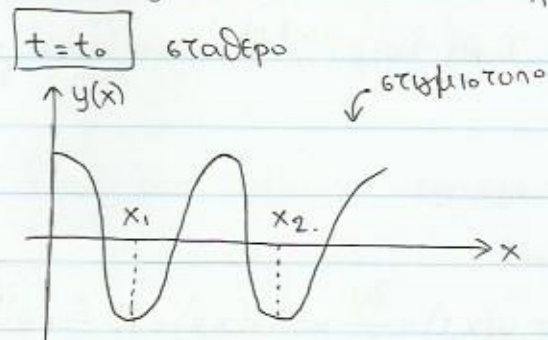 t = t₀ σταθερο
στιγμιοτυπο
y(x)
x₁ x₂.
x